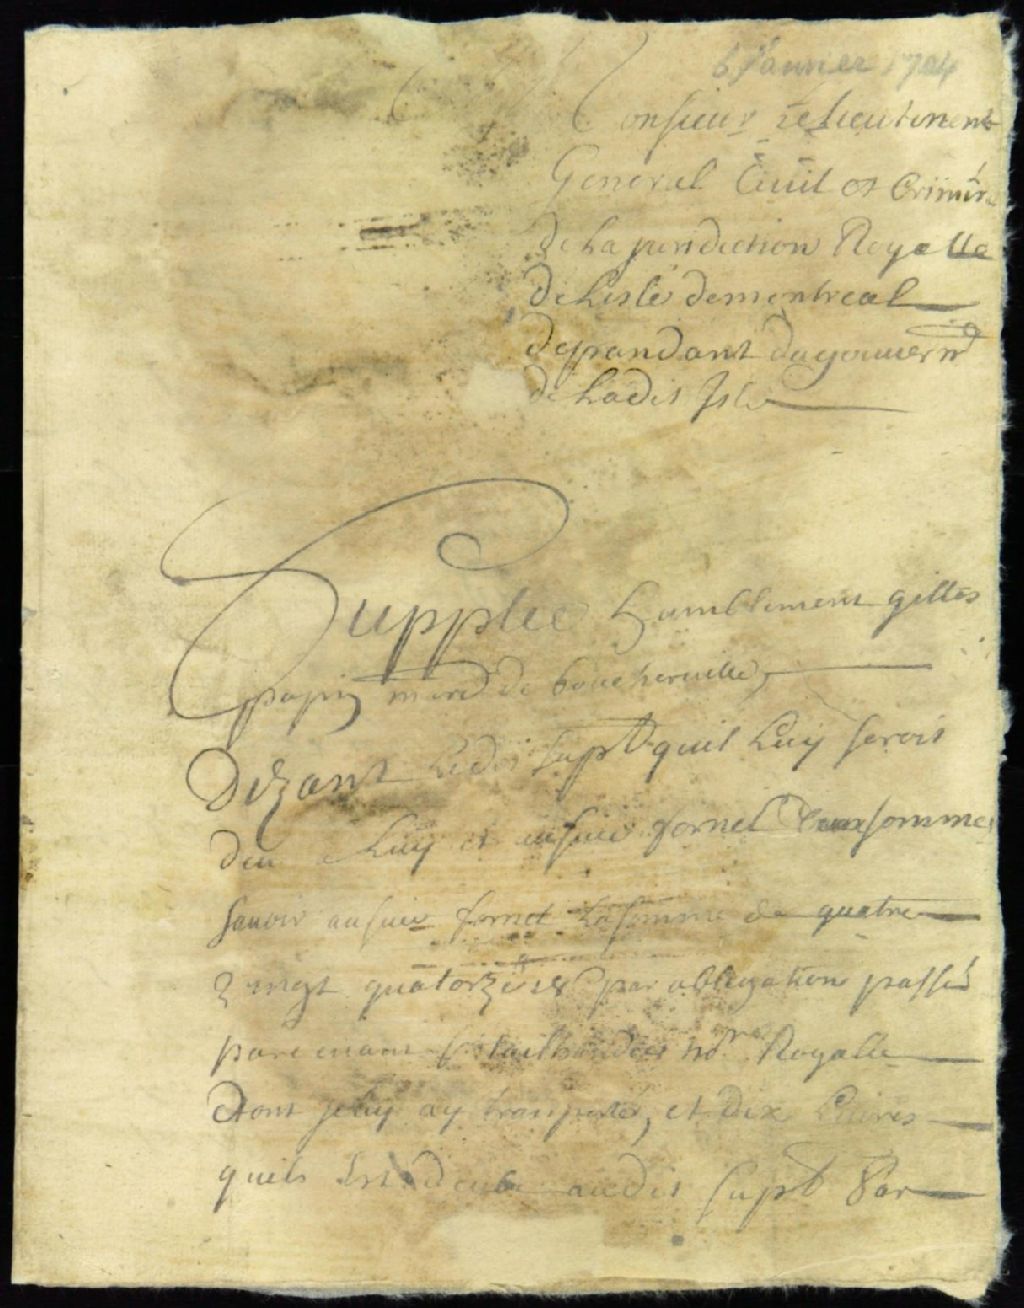 6 Janvier 1704
Monsieur le Lieutenent
General Civil et Crimin
de La juridiction Royalle
de Lisle demontreal
dependant du gouvernm
de Ladit Isle
Supplie humblement gilles
papin marcd de boucherville
Dizant Ledit supt quil Luy serois
deu a Luy et au sieur fornel deux somme
savoir au sieur fornel La somme de quatre
vingt quatorze par obligation passé
par not Royalle
dont je luy ay transporté, et Dix Livres
quils audit supt Par